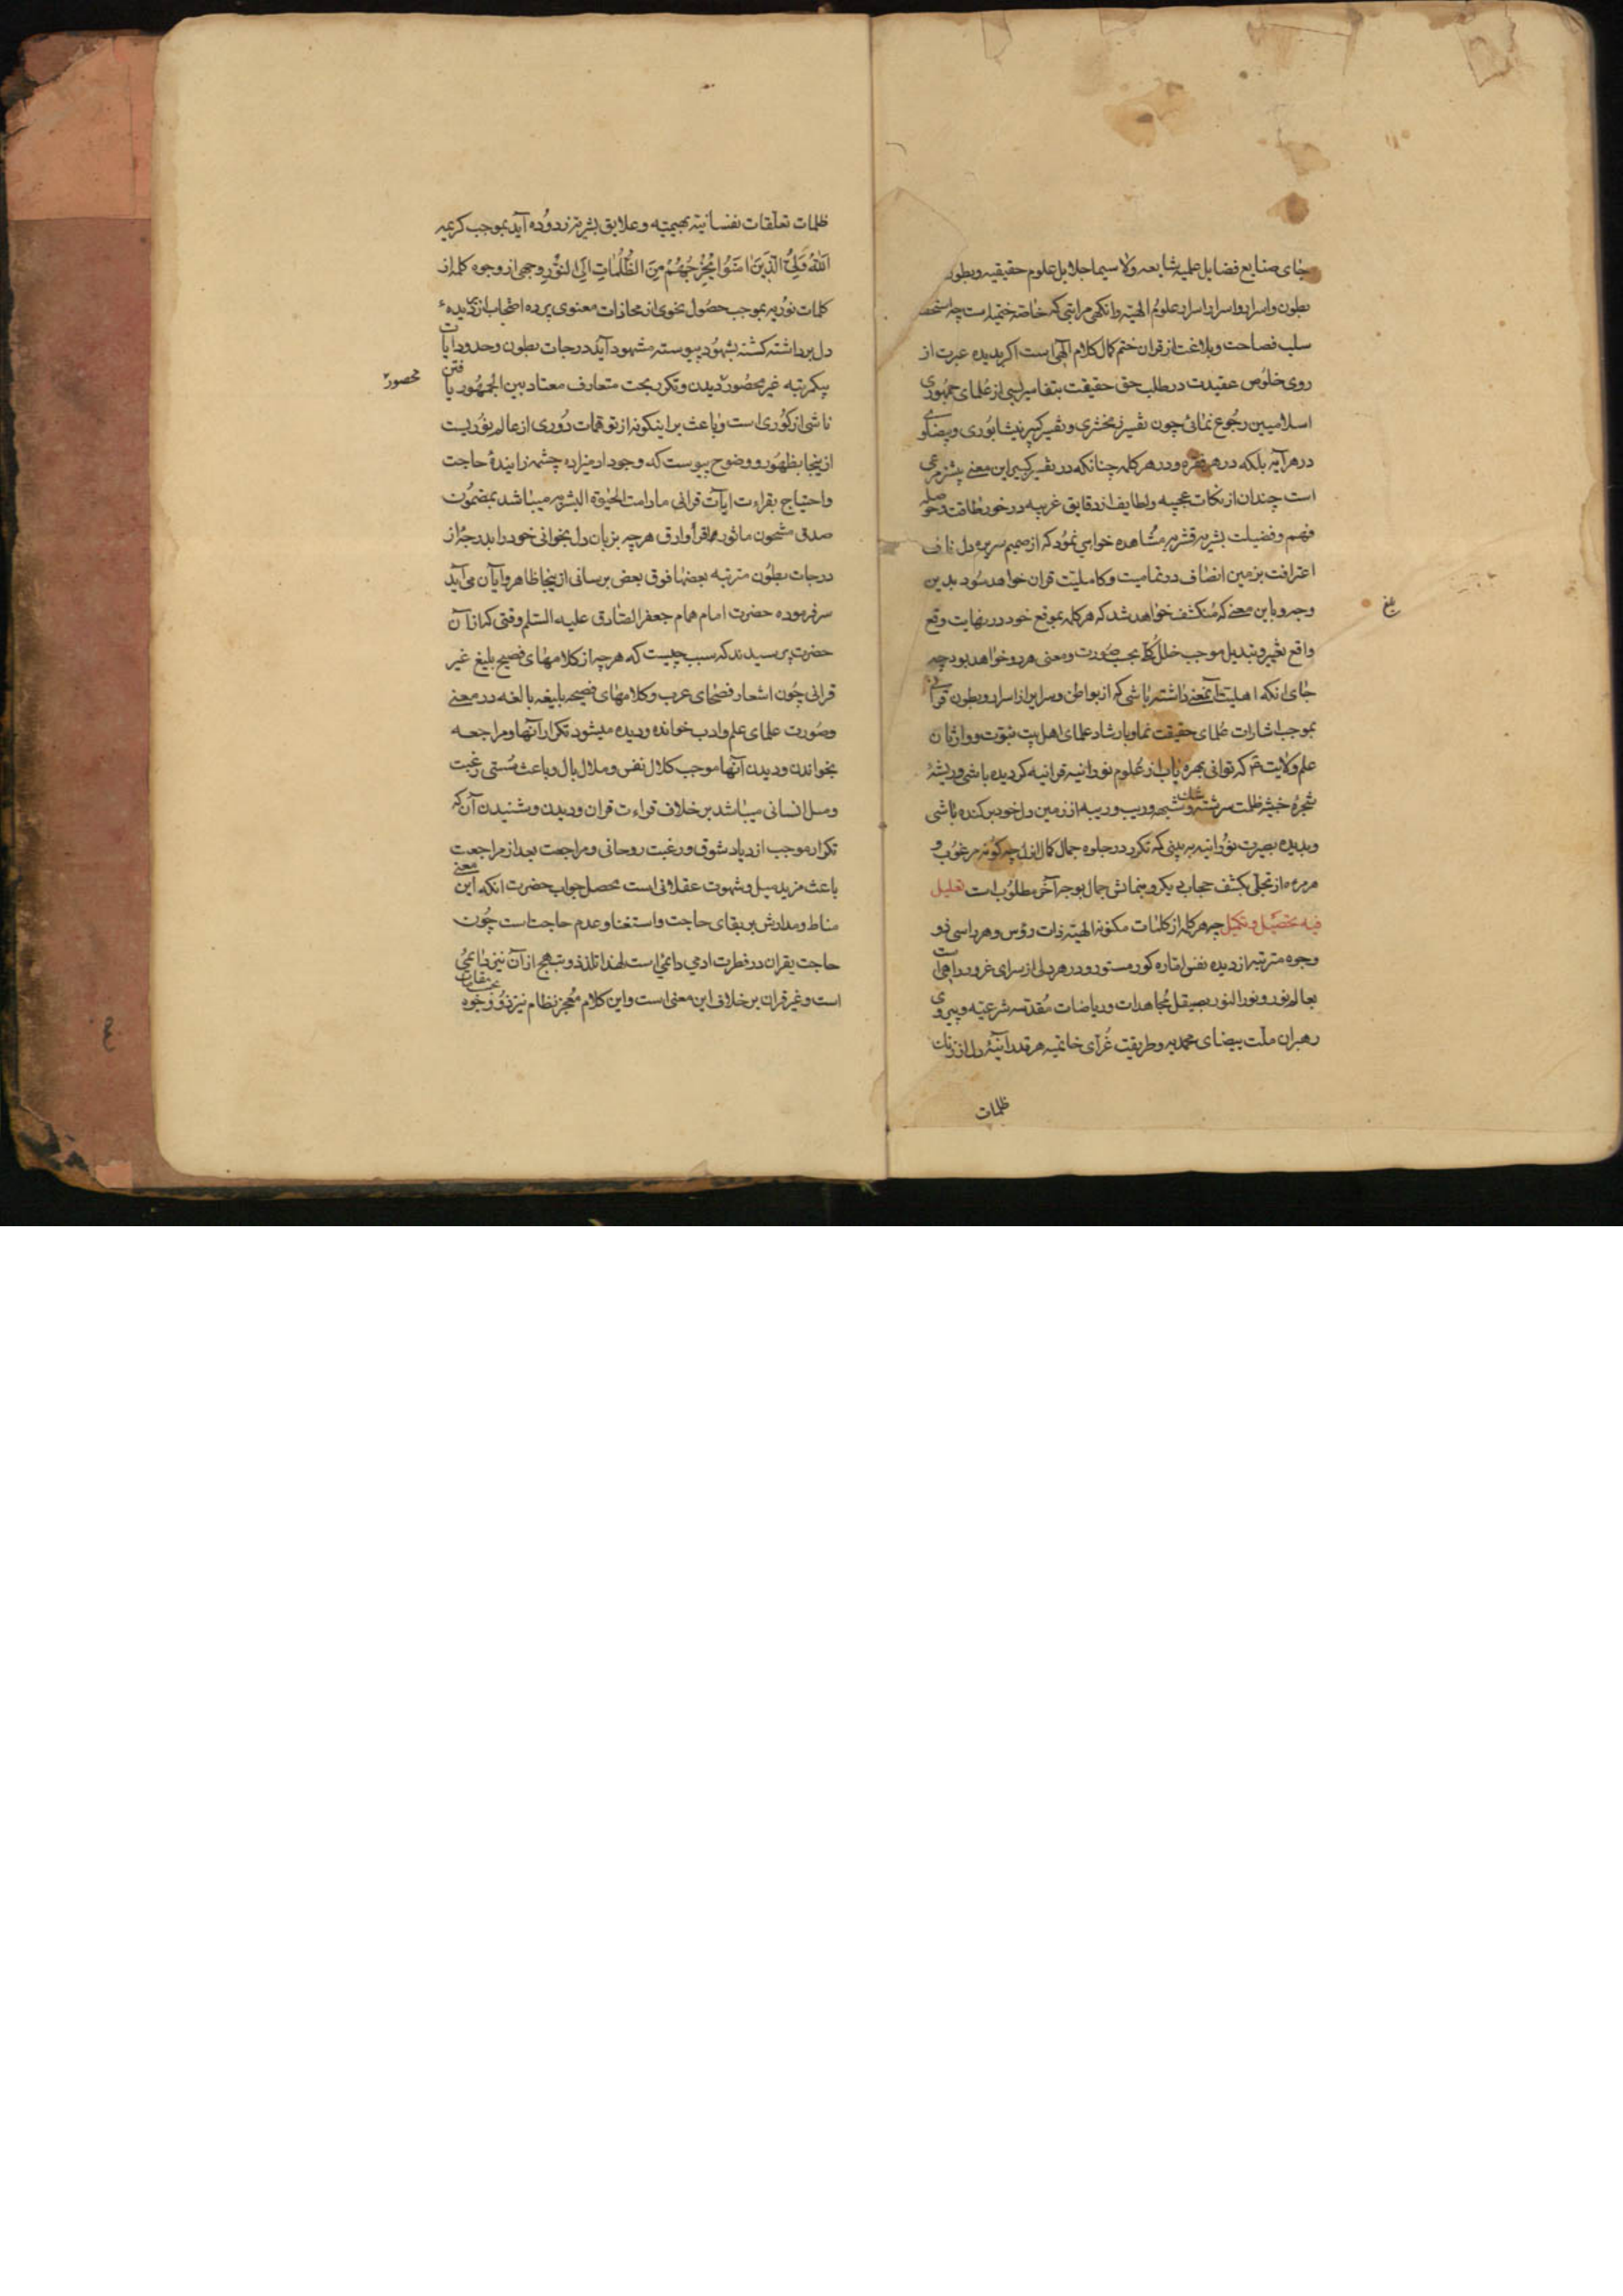 جای صنایع فضایل علمیه شایعه ولا سیما جلایل علوم حقیقیه وبطون
بطون واسرار واسرار اسرار علوم الهیه وانکهی مراتبی که خاصه ختمیه است چه
سلب فصاحت وبلاغت از قران ختم کمال کلام الهی است اکر بدیده عبرت از
روی خلوص عقیدت در طلب حق حقیقت بتفاسیر بسی از علمای جمهوری
اسلامیین رجوع نمائی چون تفسیر زمخشری وتفسیر کبیر نیشابوری وبیضاوی
در هر آیه بلکه در هر فقره ودر هر کلمه چنانکه در تفسیر کبیر این معنی بیشتر مرعی
است چندان از نکات عجیبه ولطایف از دقایق غریبه در خور طاقت وحوصله
فهم وفضیلت بشریه قشریه مشاهده خواهی نمود که از صمیم سریره دل
اعتراف بزمین انصاف در تمامیت وکاملیت قران خواهد سود بدین
وجه وباین معنی که منکشف خواهد شد که هر کلمه بموقع خود در نهایت وقع
واقع تغییر وتبدیل موجب خلل کلّا بحسب صورت ومعنی هر دو خواهد بود چه
جای انکه اهلیت آنمعنی داشته باشی که از بواطن وسرایر از اسرار وبطون قرآنی
بموجب اشارات علمای حقیقت نما وبارشاد علمای اهل بیت نبوت ووارثان
علم ولایت که توانی بهره یاب از علوم نورانیه قرانیه کردیده باشی وریشهٔ
شجرهٔ خبیثه ظلمت سرشته شک وشبهه وریب وریبه از زمین دل خود برکنده باشی
وبدیده بصیرت نورانیه به بینی که تکرر در جلوه جمال کمال ازل چه کونه مرغوب و
هر مره از تجلی بکشف حجاب دیکر ونمایش جمال بوجه آخر مطلوب است تعلیل
فیه تحصیل وتکمیل چه هر کلمه از کلمات مکنونه الهیه ذات رؤس وهر راسی ذو
وجوه مترتبه از دیده نفس اماره کور مستور ودر هر دلی از سرای غرور راهی است
بعالم نور ونور النور بصیقل مجاهدات وریاضات مقدسه شرعیه وپیروی
رهبران ملت بیضای محمدیه وطریقت غرآی خاتمیه هر قدر آئینهٔ دل از
ظلمات
بلغ
ظلمات تعلقات نفسانیه بهیمیه وعلایق بشریه زدوده آید بموجب کریمه
اللهُ وَلِيُّ الَّذِينَ امَنُوا يُخْرِجُهُمْ مِنَ الظُّلُمَاتِ اِلَى النُّورِ وجهی از وجوه کلمه از
کلمات نوریه بموجب حصول نحوی از محاذات معنوی پرده احتجاب از دیدهء
دل برداشته کشته بشهود پیوسته مشهود آید درجات بطون وحدود ایات
بیکمرتبه غیر محصور دیدن وتکرر بحت متعارف معتاد بین الجمهور یافتن
محصور
ناشی از کوری است وباعث بر اینکونه از توهمات دوری از عالم نوریست
از ینجا بظهور ووضوح پیوست که وجود ادمیزاده چشمه زایندهٔ حاجت
واحتیاج بقراءت ایات قرانی مادامت الحیوة البشریه میباشد بمضمون
صدق مشحون ماثوره اقرأ وارق هرچه بزبان دل بخوانی خود را بدرجه از
درجات بطون مترتبه بعضها فوق بعض برسانی از ینجا ظاهر وآیان می آید
سر فرموده حضرت امام همام جعفر الصادق علیه السلم وقتی که از آن
حضرت پرسیدند که سبب چیست که هرچه از کلامهای فصیح بلیغ غیر
قرانی چون اشعار فصحای عرب وکلامهای فصیحه بلیغه بالغه در معنی
وصورت علمای علم وادب خوانده ودیده میشود تکرار آنها ومراجعه
بخواندن ودیدن آنها موجب کلال نفس وملال بال وباعث سستی رغبت
ومیل انسانی میباشد بر خلاف قراءت قران ودیدن وشنیدن آن که
تکرار موجب ازدیاد شوق ورغبت روحانی ومراجعت بعد از مراجعت
باعث مزید میل وشهوت عقلانی است محصل جواب حضرت انکه این معنی
مناط ومدارش بر بقای حاجت واستغنا وعدم حاجت است چون
حاجت بقران در فطرت ادمی دائمی است لهذا تلذذ وتبهج از آن نیز دایمی
است وغیر قران بر خلاف این معنی است واین کلام معجز نظام نیز ذو وجوه